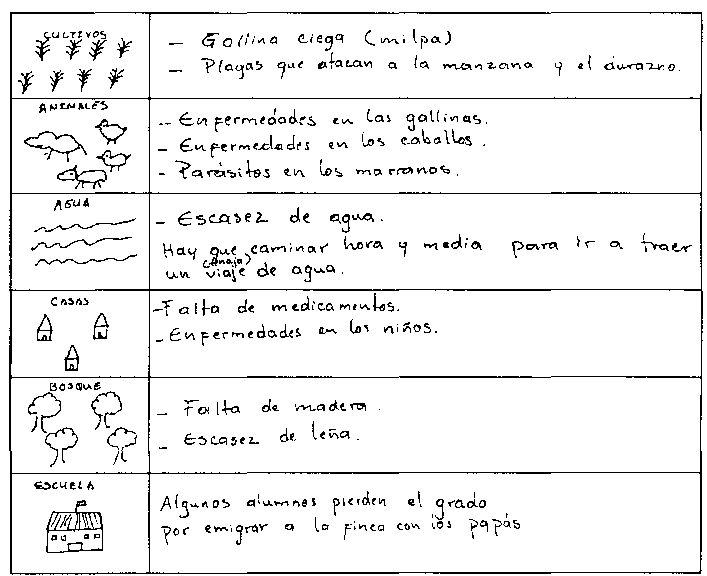 CULTIVOS
- Gallina ciega (milpa)
- Plagas que atacan a la manzana y el durazno.
ANIMALES
- Enfermedades en las gallinas.
- Enfermedades en los caballos.
- Parásitos en los marranos.
AGUA
- Escasez de agua.
Hay que caminar hora y media para ir a traer
(tinaja)
un viaje de agua.
CASAS
- Falta de medicamentos.
- Enfermedades en los niños.
BOSQUE
- Falta de madera.
- Escasez de leña.
ESCUELA
Algunos alumnos pierden el grado
por emigrar a la finca con los papás